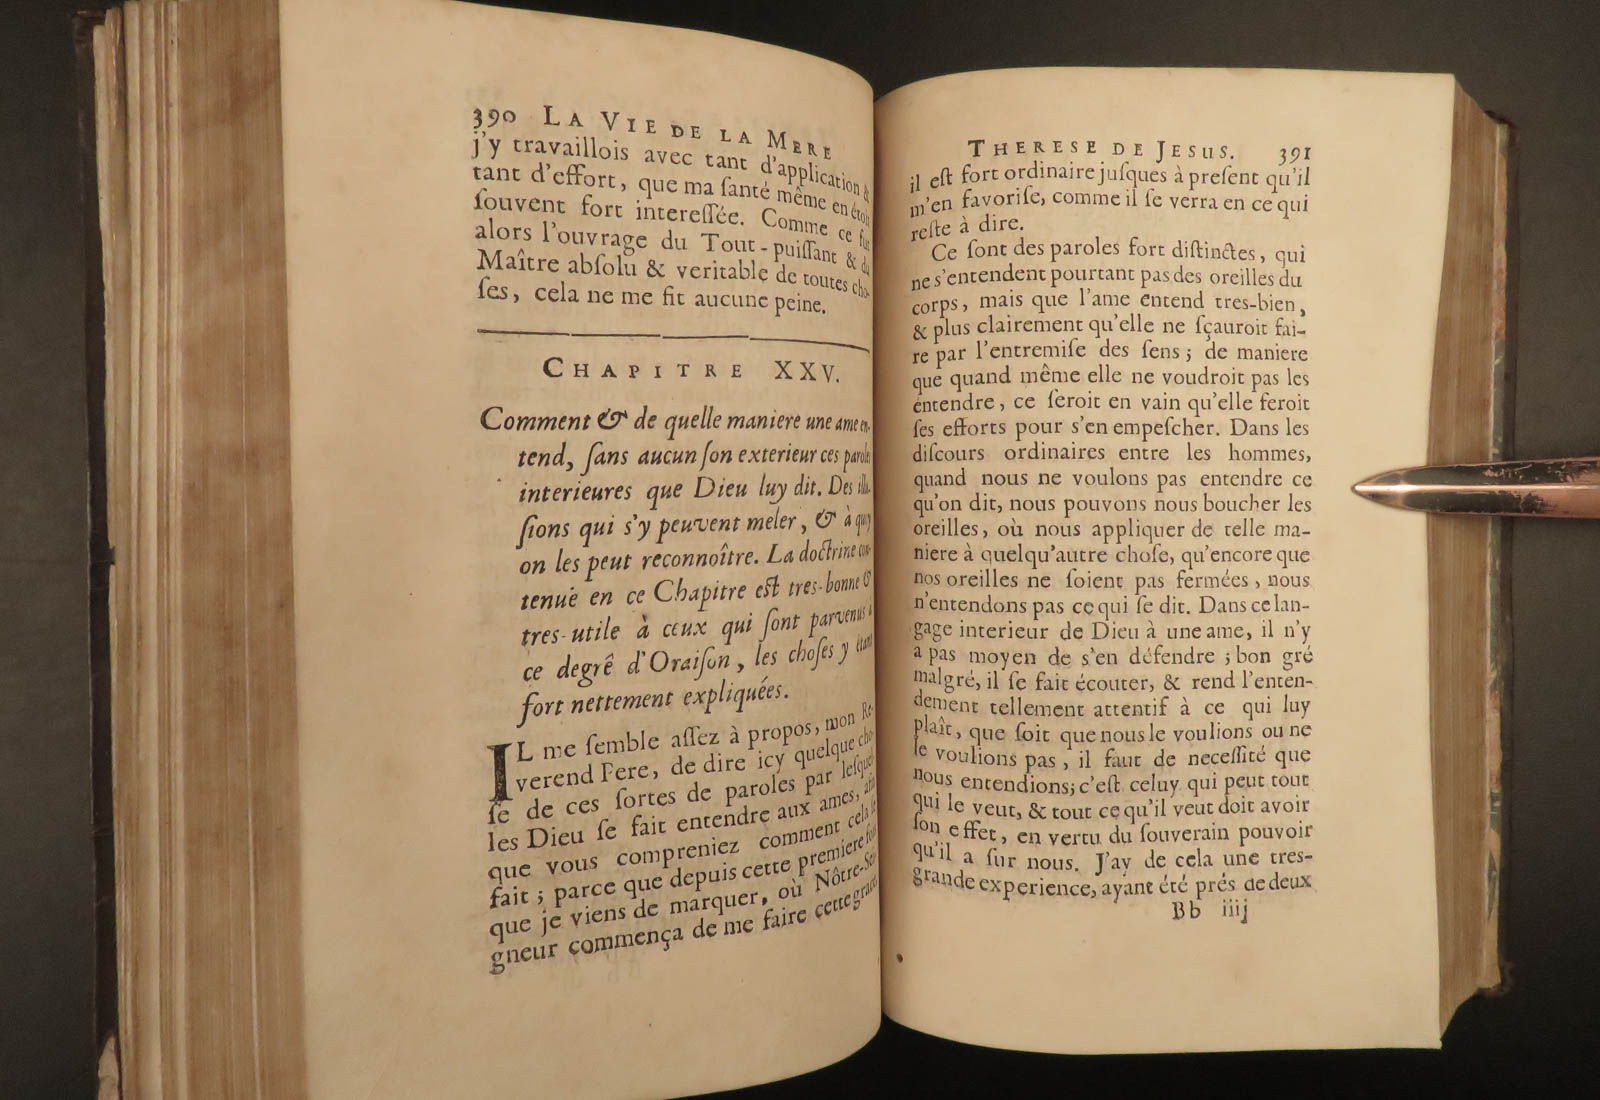 390 LA VIE DE LA MERE
j'y travaillois avec tant d'application &
tant d'effort, que ma ſanté même en étoit
ſouvent fort intereſſée. Comme ce fut
alors l'ouvrage du Tout-puiſſant & du
Maître abſolu & veritable de toutes cho-
ſes, cela ne me fit aucune peine.
CHAPITRE XXV.
Comment & de quelle maniere une ame en-
tend, ſans aucun ſon exterieur ces paroles
interieures que Dieu luy dit. Des illu-
ſions qui s'y peuvent meler, & à quoy
on les peut reconnoître. La doctrine con-
tenuë en ce Chapitre est tres-bonne &
tres-utile à ceux qui ſont parvenus à
ce degrê d'Oraiſon, les choſes y étant
fort nettement expliquées.
IL me ſemble aſſez à propos, mon Re-
verend Pere, de dire icy quelque cho-
ſe de ces ſortes de paroles par leſquel-
les Dieu ſe fait entendre aux ames, afin
que vous compreniez comment cela ſe
fait; parce que depuis cette premiere fois
que je viens de marquer, où Nôtre-Sei-
gneur commença de me faire cette grace,
THERESE DE JESUS. 391
il eſt fort ordinaire juſques à preſent qu'il
m'en favoriſe, comme il ſe verra en ce qui
reſte à dire.
Ce ſont des paroles fort diſtinctes, qui
ne s'entendent pourtant pas des oreilles du
corps, mais que l'ame entend tres-bien,
& plus clairement qu'elle ne ſçauroit fai-
re par l'entremiſe des ſens; de maniere
que quand même elle ne voudroit pas les
entendre, ce ſeroit en vain qu'elle feroit
ſes efforts pour s'en empeſcher. Dans les
diſcours ordinaires entre les hommes,
quand nous ne voulons pas entendre ce
qu'on dit, nous pouvons nous boucher les
oreilles, où nous appliquer de telle ma-
niere à quelqu'autre choſe, qu'encore que
nos oreilles ne ſoient pas fermées, nous
n'entendons pas ce qui ſe dit. Dans ce lan-
gage interieur de Dieu à une ame, il n'y
a pas moyen de s'en défendre; bon gré
malgré, il ſe fait écouter, & rend l'enten-
dement tellement attentif à ce qui luy
plaît, que ſoit que nous le voulions ou ne
le voulions pas, il faut de neceſſité que
nous entendions; c'eſt celuy qui peut tout
qui le veut, & tout ce qu'il veut doit avoir
ſon effet, en vertu du ſouverain pouvoir
qu'il a ſur nous. J'ay de cela une tres-
grande experience, ayant été prés de deux
Bb iiij